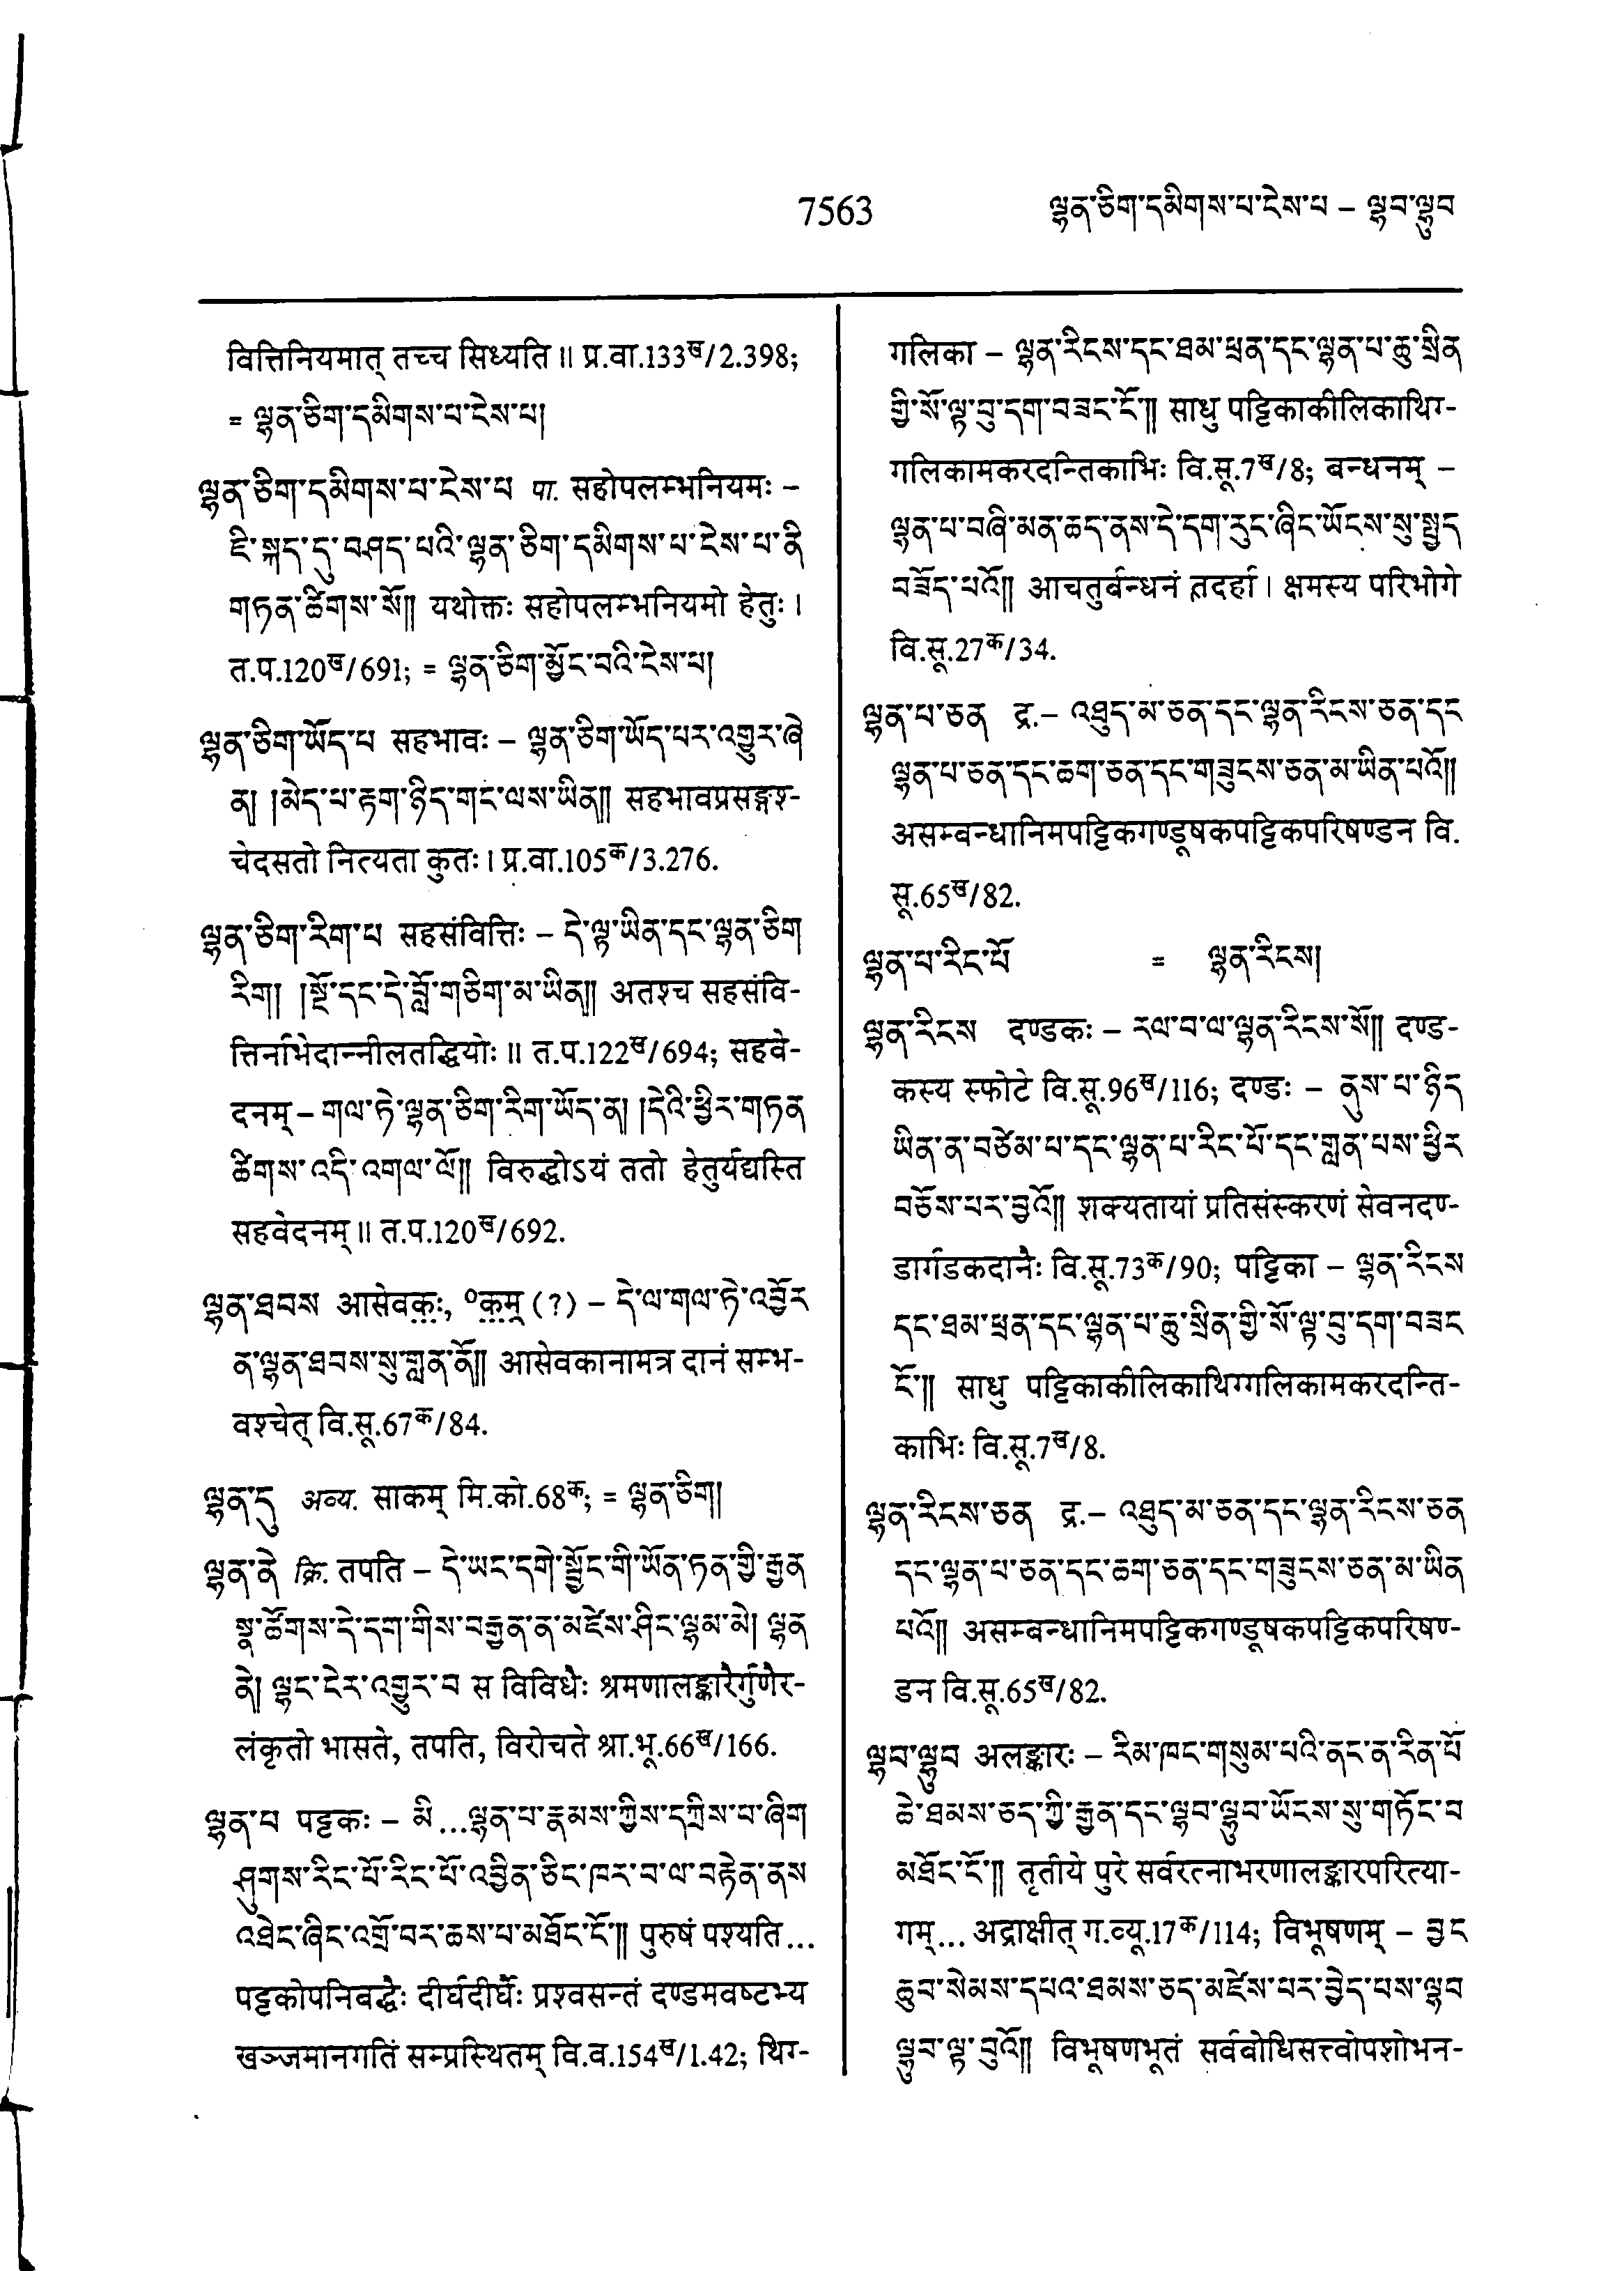 7563
ལྷན་ཅིག་དམིགས་པ་ངེས་པ – ལྷབ་ལྷུབ
वित्तिनियमात् तच्च सिध्यति ॥ प्र.वा.133ख/2.398;
= ལྷན་ཅིག་དམིགས་པ་ངེས་པ།
ལྷན་ཅིག་དམིགས་པ་ངེས་པ पा. सहोपलम्भनियमः –
ཇི་སྐད་དུ་བཤད་པའི་ལྷན་ཅིག་དམིགས་པ་ངེས་པ་ནི
གཏན་ཚིགས་སོ།། यथोक्तः सहोपलम्भनियमो हेतुः ।
त.प.120ख/691; = ལྷན་ཅིག་མྱོང་བའི་ངེས་པ།
ལྷན་ཅིག་ཡོད་པ सहभावः – ལྷན་ཅིག་ཡོད་པར་འགྱུར་ཞེ
ན། །མེད་པ་རྟག་ཉིད་གང་ལས་ཡིན།། सहभावप्रसङ्गश्-
चेदसतो नित्यता कुतः । प्र.वा.105क/3.276.
ལྷན་ཅིག་རིག་པ सहसंवित्तिः – དེ་ལྟ་ཡིན་དང་ལྷན་ཅིག
རིག། །སྔོ་དང་དེ་བློ་གཅིག་མ་ཡིན།། अतश्च सहसंवि-
त्तिर्नाभेदान्नीलतद्धियोः ॥ त.प.122ख/694; सहवे-
दनम् – གལ་ཏེ་ལྷན་ཅིག་རིག་ཡོད་ན། །དེའི་ཕྱིར་གཏན
ཚིགས་འདི་འགལ་ལོ།། विरुद्धोऽयं ततो हेतुर्यद्यस्ति
सहवेदनम् ॥ त.प.120ख/692.
ལྷན་ཐབས आसेवकः, ०कम् (?) – དེ་ལ་གལ་ཏེ་འབྱོར
ན་ལྷན་ཐབས་སུ་གླན་ནོ།། आसेवकानामत्र दानं सम्भ-
वश्चेत् वि.सू.67क/84.
ལྷན་དུ अव्य. साकम् मि.को.68क; = ལྷན་ཅིག།
ལྷན་ནེ क्रि. तपति – དེ་ཡང་དགེ་སྦྱོང་གི་ཡོན་ཏན་གྱི་རྒྱན
སྣ་ཚོགས་དེ་དག་གིས་བརྒྱན་ན་མཛེས་ཤིང་ལྷམ་མེ། ལྷན
ནེ། ལྷང་ངེར་འགྱུར་བ स विविधैः श्रमणालङ्कारैर्गुणैर-
लंकृतो भासते, तपति, विरोचते श्रा.भू.66ख/166.
ལྷན་པ पट्टकः – མི...ལྷན་པ་རྣམས་ཀྱིས་དཀྲིས་པ་ཞིག
ཤུགས་རིང་པོ་རིང་པོ་འབྱིན་ཅིང་ཁར་བ་ལ་བརྟེན་ནས
འཐེང་ཞིང་འགྲོ་བར་ཆས་པ་མཐོང་ངོ་།། पुरुषं पश्यति...
पट्टकोपनिबद्धैः दीर्घदीर्घैः प्रश्वसन्तं दण्डमवष्टभ्य
खञ्जमानगतिं सम्प्रस्थितम् वि.व.154ख/1.42; थिग्-
गलिका – ལྷན་རིངས་དང་ཐམ་ཕྲན་དང་ལྷན་པ་ཆུ་སྲིན
གྱི་སོ་ལྟ་བུ་དག་བཟང་ངོ་།། साधु पट्टिकाकीलिकाथिग्-
गलिकामकरदन्तिकाभिः वि.सू.7ख/8; बन्धनम् –
ལྷན་པ་བཞི་མན་ཆད་ནས་དེ་དག་རུང་ཞིང་ཡོངས་སུ་སྤྱད
བཟོད་པའོ།། आचतुर्बन्धनं तदर्हा । क्षमस्य परिभोगे
वि.सू.27क/34.
ལྷན་པ་ཅན द्र.– འཐུད་མ་ཅན་དང་ལྷན་རིངས་ཅན་དང
ལྷན་པ་ཅན་དང་ཆག་ཅན་དང་གཟུངས་ཅན་མ་ཡིན་པའོ།།
असम्बन्धानिमपट्टिकगण्डूषकपट्टिकपरिषण्डन वि.
सू.65ख/82.
ལྷན་པ་རིང་པོ = ལྷན་རིངས།
ལྷན་རིངས दण्डकः – རལ་བ་ལ་ལྷན་རིངས་སོ།། दण्ड-
कस्य स्फोटे वि.सू.96ख/116; दण्डः – ནུས་པ་ཉིད
ཡིན་ན་བཙེམ་པ་དང་ལྷན་པ་རིང་པོ་དང་གླན་པས་ཕྱིར
བཅོས་པར་བྱའོ།། शक्यतायां प्रतिसंस्करणं सेवनदण्-
डार्गडकदानैः वि.सू.73क/90; पट्टिका – ལྷན་རིངས
དང་ཐམ་ཕྲན་དང་ལྷན་པ་ཆུ་སྲིན་གྱི་སོ་ལྟ་བུ་དག་བཟང
ངོ་།། साधु पट्टिकाकीलिकाथिग्गलिकामकरदन्ति-
काभिः वि.सू.7ख/8.
ལྷན་རིངས་ཅན द्र.– འཐུད་མ་ཅན་དང་ལྷན་རིངས་ཅན
དང་ལྷན་པ་ཅན་དང་ཆག་ཅན་དང་གཟུངས་ཅན་མ་ཡིན
པའོ།། असम्बन्धानिमपट्टिकगण्डूषकपट्टिकपरिषण्-
डन वि.सू.65ख/82.
ལྷབ་ལྷུབ अलङ्कारः – རིམ་ཁང་གསུམ་པའི་ནང་ན་རིན་པོ
ཆེ་ཐམས་ཅད་ཀྱི་རྒྱན་དང་ལྷབ་ལྷུབ་ཡོངས་སུ་གཏོང་བ
མཐོང་ངོ་།། तृतीये पुरे सर्वरत्नाभरणालङ्कारपरित्या-
गम्... अद्राक्षीत् ग.व्यू.17क/114; विभूषणम् – བྱང
ཆུབ་སེམས་དཔའ་ཐམས་ཅད་མཛེས་པར་བྱེད་པས་ལྷབ
ལྷུབ་ལྟ་བུའོ།། विभूषणभूतं सर्वबोधिसत्त्वोपशोभन-